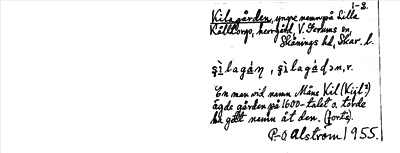 1-2.
Kilagården, yngre namn på Lilla
Kålltorp, herrgård, V. Gerums sn,
Skånings hd, Skar. l.
En man vid namn Måns Kil (Kijl?)
ägde gården på 1600-talet o. torde
ha gett namn åt den. (forts.)
P-O Alström 1955.